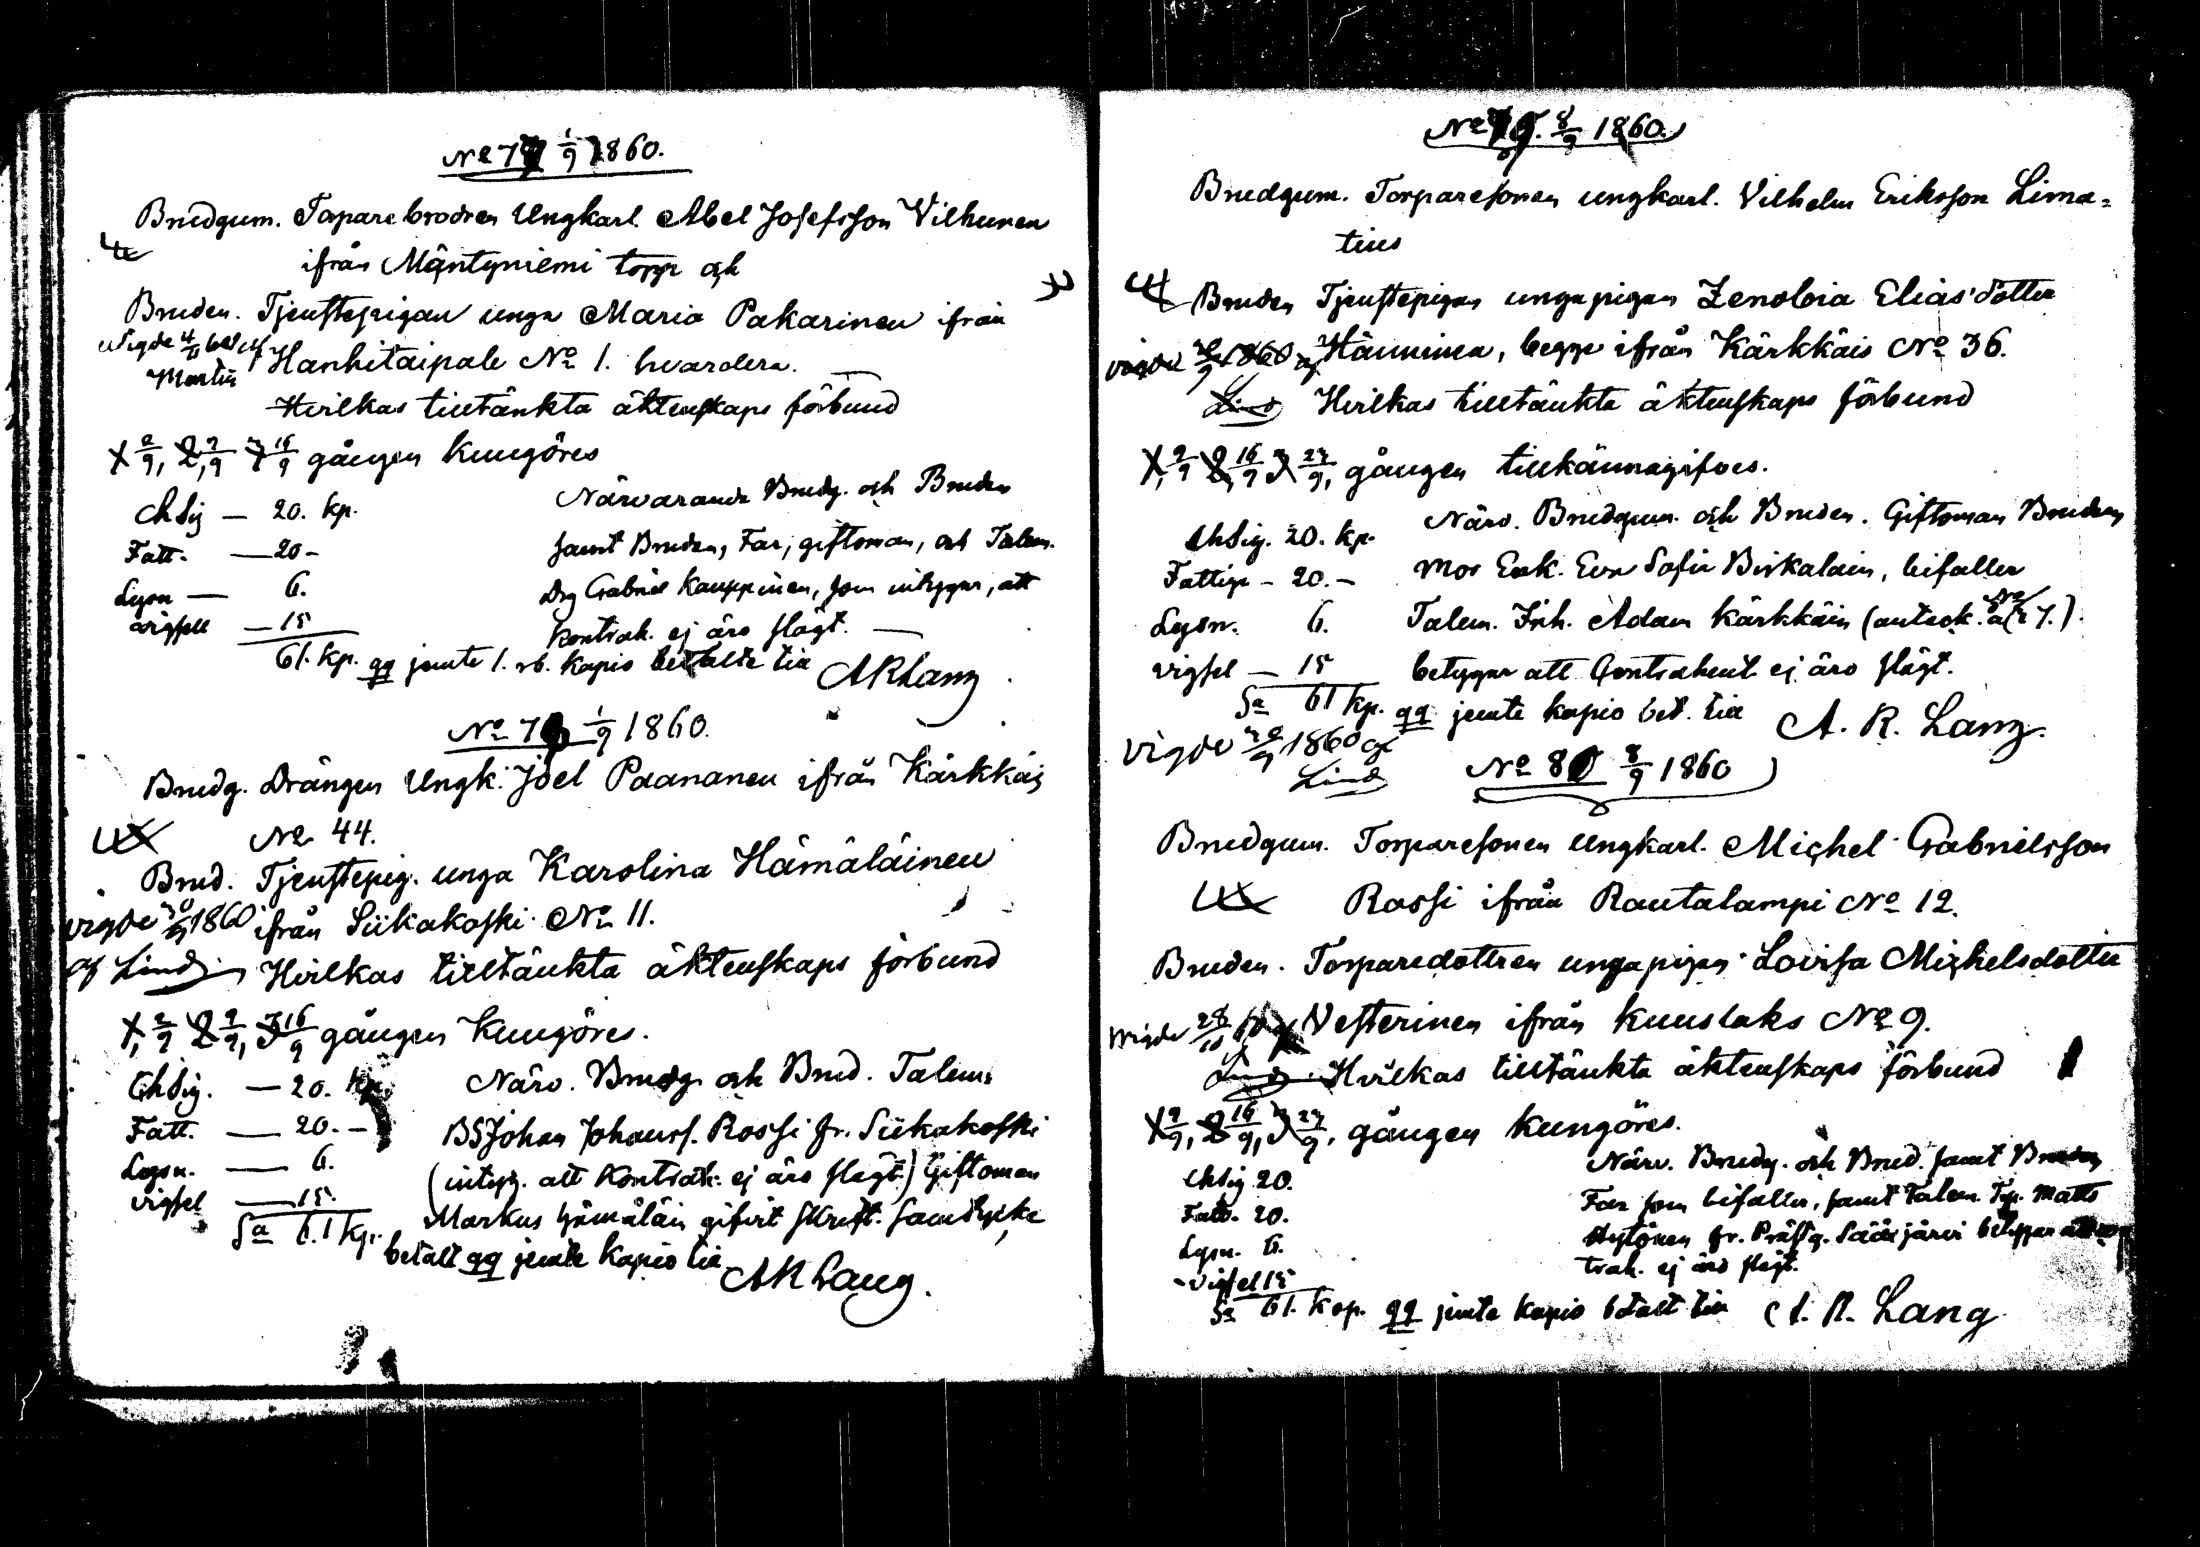 No 77 1/9 1860.
Brudgum. Torpare brodren Ungkarl Abel Josefsson Vilhunen
ifrån Mäntyniemi torp och
Bruden. Tjenstepigan unga Maria Pakarinen ifrån
Vigde
Martin
Hanhitaipale No 1. hvardera.
Hvilkas tilltänkta äktenskaps förbund
1, 2/9, 2, 9/9 3 16/9 gången kungöres
Ch Sig — 20. kp.
Fatt. — 20 -
Lysn — 6.
vigsell — 15
61. kp.
Närvarande Brudg. och Bruden
samt Bruden, Far, giftoman, och Talem.
Drg Gabriel Kauppinen, som intygar, att
kontrah. ej äro slägt.
qq jemte 1. rb. kapio betalte till
A R Lang
No 78 1/9 1860.
Brudg. Drängen Ungk. Joel Paananen ifrån Kärkkäis
No 44.
Brud. Tjenstepig. unga Karolina Hämäläinen
vigde 30/9 1860
af Lind
ifrån Siikakoski No 11.
Hvilkas tilltänkta äktenskaps förbund
1, 2/9 2 9/9, 3 16/9 gången kungöres.
Ch Sig. — 20. kp.
Fatt. — 20. -
Lysn. — 6.
vigsel — 15.
Sa 61 kp.
Närv. Brudg. och Brud. Talem.
BS Johan Johanss. Rossi fr. Siikakoski
(intyg. att kontrah. ej äro slägt.) Giftoman
Markus Hämäläin gifvit skrift. samtycke
betalt qq jemte kapio till
A R Lang.
No 79. 8/9 1860.
Brudgum. Torparesonen ungkarl. Vilhelm Eriksson Lima=
tius
Bruden Tjenstepigan unga pigan Zenobia Elias dotter
vigde 30/9 1860 af
Lind
Hänninen, begge ifrån Kärkkäis No 36.
Hvilkas tilltänkta äktenskaps förbund
1, 9/9 2, 16/9 3 23/9, gången tillkännagifves.
Ch Sig. 20. kp.
Fattige - 20. -
Lysn. 6.
vigsel — 15
Sa 61 kp.
Närv. Brudgum. och Bruden. Giftoman Brudens
Mor Enk. Eva Sofia Birkalain, bifaller
Talem. Inh. Adam Kärkkäin
betygar att Contrahent ej äro slägt.
qq jemte kapio bet. till
A. R. Lang.
vigde 30/9 1860 af
Lind
No 80 8/9 1860
Brudgum. Torparesonen Ungkarl. Michel Gabrielsson
Rossi ifrån Rautalampi No 12.
Bruden. Torparedottren unga pigan Lovisa Michelsdotter
vigde 28/10
Lind
Vesterinen ifrån Kuuslaks No 9.
Hvilkas tilltänkta äktenskaps förbund
1 9/9, 2 16/9, 3 23/9. gången kungöres.
Ch Sig 20.
Fatt. 20.
Lysn. 6.
vigsel 15
Sa 61. kop.
Närv. Brudg. och Brud. samt Brudens
Far som bifaller, samt Talem. Trp. Matts
Hytönen fr. Prästg. Sääxjärvi betygar att kon
trah. ej äro slägt.
qq jemte kapio betalt till
A. R. Lang